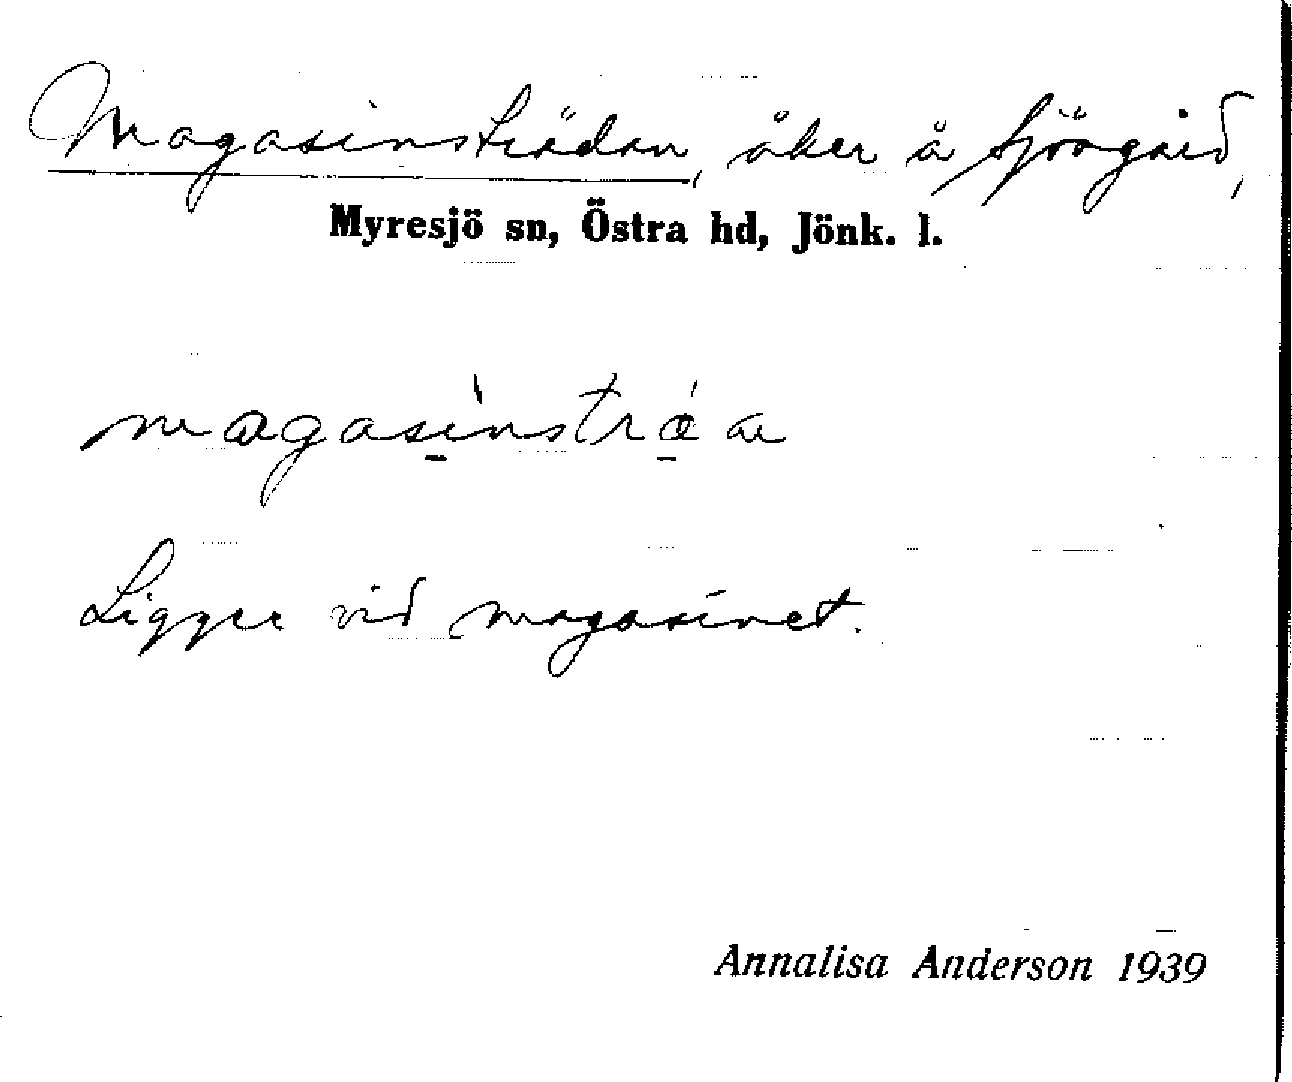 Magasinsträdan, åker å Sjöagård,
Myresjö sn, Östra hd, Jönk. l.
magasinstræa
Ligger vid magasinet.
Annalisa Anderson 1939